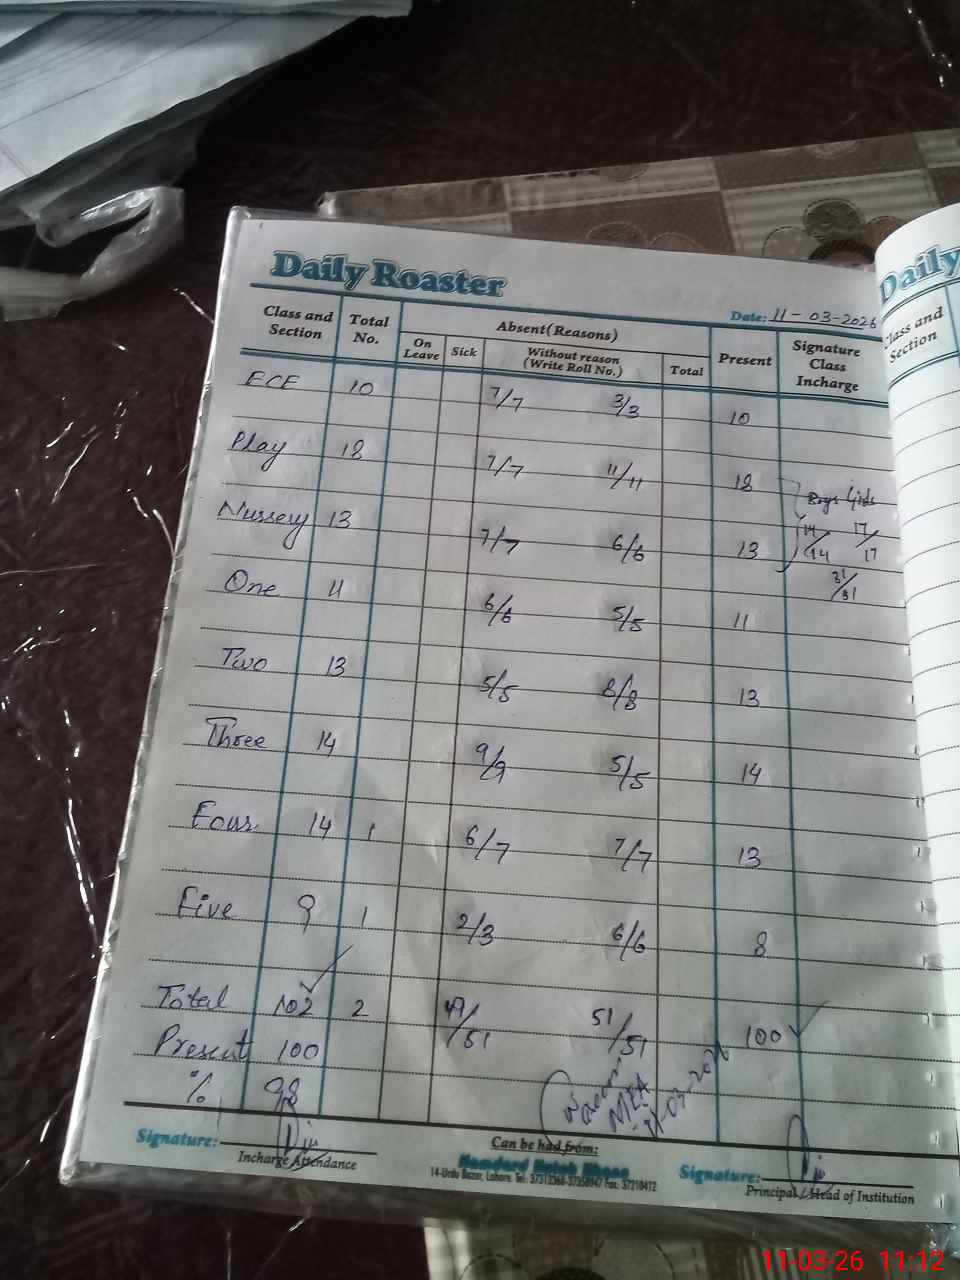 Daily Roaster
Date: 11-03-2026
Class and Section Total No. Absent(Reasons) Present Signature Class Incharge
On Leave Sick Without reason (Write Roll No.) Total
ECE 10 7/7 3/3 10
Play 18 7/7 11/11 18 Boys Girls
Nursery 13 7/7 6/6 13 14/14 17/17
31/31
One 11 6/6 5/5 11
Two 13 5/5 8/8 13
Three 14 9/9 5/5 14
Four 14 1 6/7 7/7 13
Five 9 1 2/3 6/6 8
Total 102 2 49/51 51/51 100
Present 100
% 98
MEA
11-03-2026
Signature: Can be had from: Signature:
Incharge Attendance Hamdard Kutab Khana Principal / Head of Institution
14-Urdu Bazar, Lahore. Tel: 37312368-37358947 Fax: 37210412
Daily
Class and Section
11-03-26 11:12